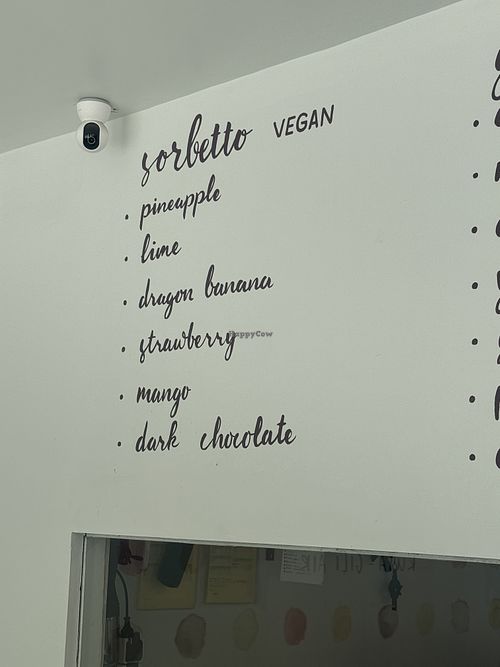 sorbetto VEGAN
• pineapple
• lime
• dragon banana
• strawberry
HappyCow
• mango
• dark chocolate